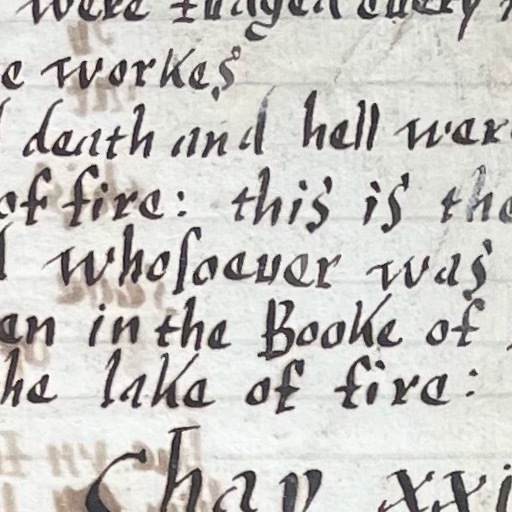 were iudged euery
e workes
death and hell wer
of fire: this is the
whosoeuer was
en in the Booke of
he lake of fire:
Chap xxi